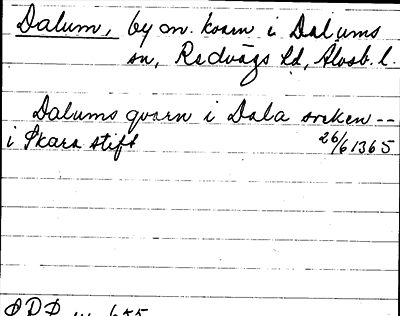 Dalum, by o. kvarn i Dalums
sn, Redvägs hd, Älvsb. l.
Dalums qvarn i Dala socken --
i Skara stift 26/6 1365